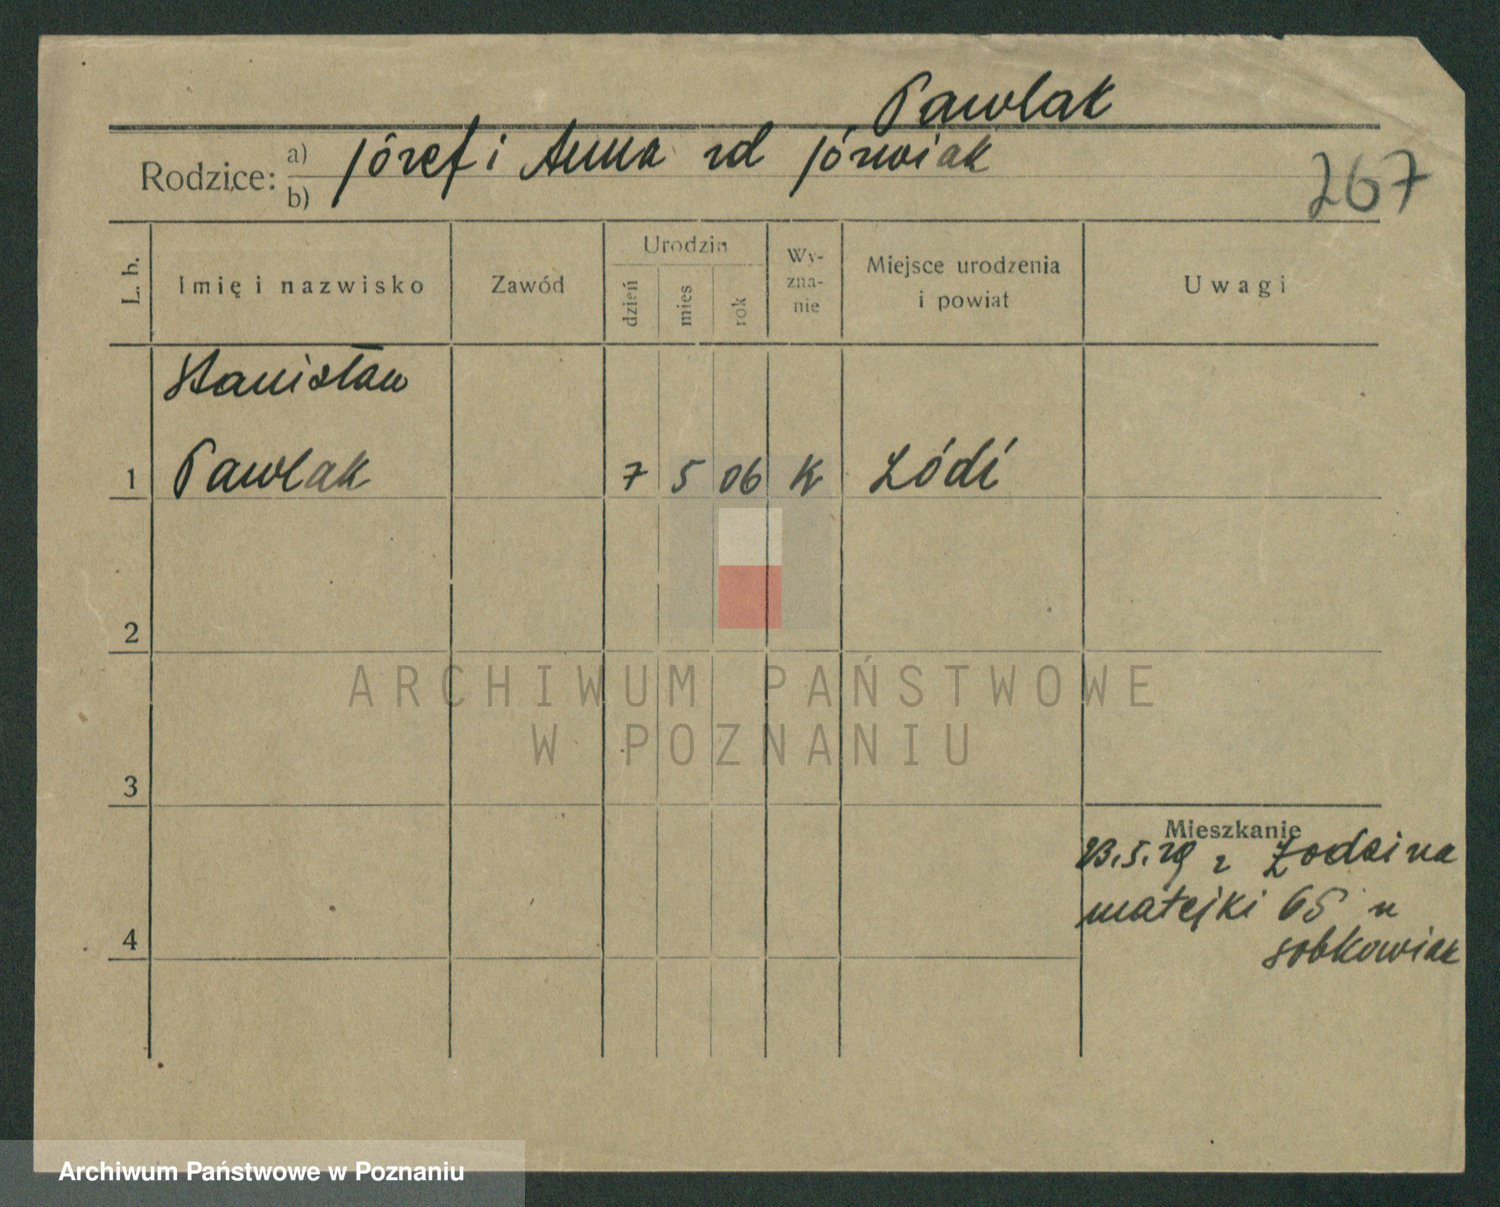 Pawlak
Rodzice: a) b) Józef i Anna rd Józwiak
267
L. b.
Imię i nazwisko
Zawód
Urodzin
dzień
mies
rok
Wy-
zna-
nie
Miejsce urodzenia
i powiat
Uwagi
Stanisław
1 Pawlak 7 5 06 K Łódź
2
3
4
Mieszkanie
23.5.29 z Łodzi na
Matejki 65 u
Sobkowiak
ARCHIWUM PAŃSTWOWE
W POZNANIU
Archiwum Państwowe w Poznaniu